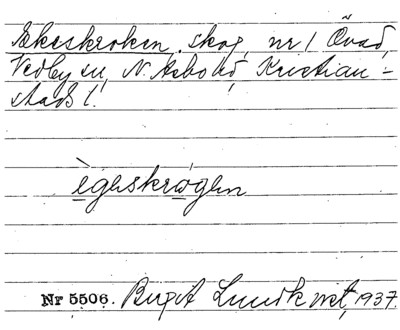 Ekeskroken, skog, nr 1 Övad,
Vedby sn, N. Åsbo hd, Kristian-
stads l.
ègeskrógen
Nr 5506. Birgit Lundkvist, 1937